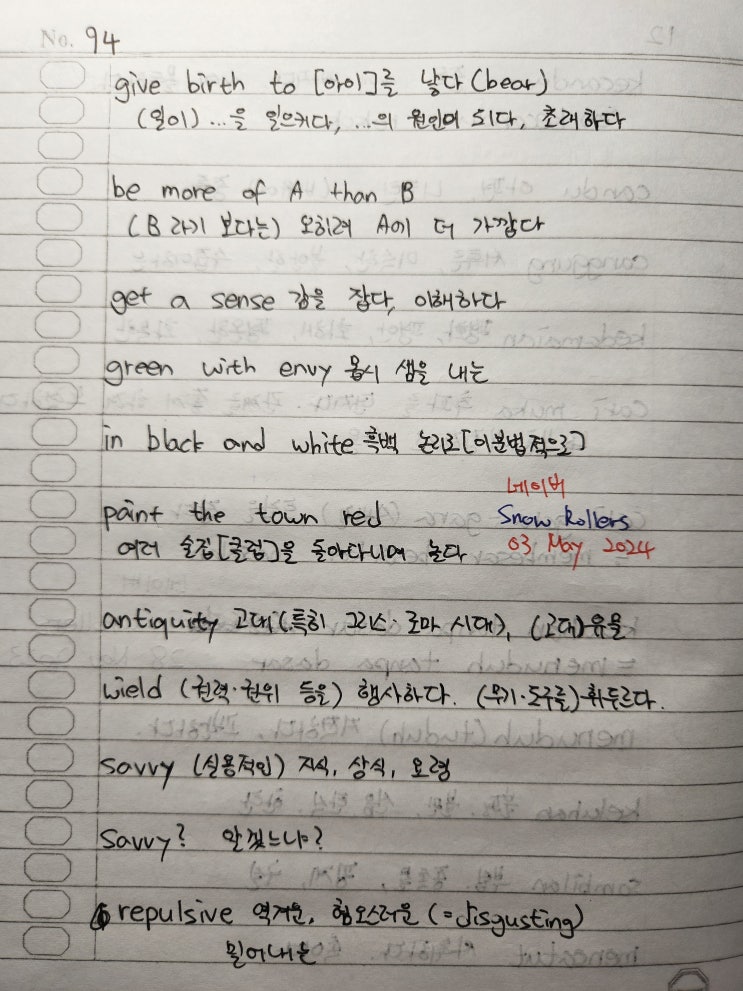 No. 94
give birth to [아이]를 낳다 (bear)
(일이) ...을 일으키다, ...의 원인이 되다, 초래하다
be more of A than B
(B 라기 보다는) 오히려 A에 더 가깝다
get a sense 감을 잡다, 이해하다
green with envy 몹시 샘을 내는
in black and white 흑백 논리로[이분법적으로]
네이버
paint the town red Snow Rollers
여러 술집[클럽]을 돌아다니며 놀다 03 May 2024
antiquity 고대(특히 그리스·로마 시대), (고대)유물
wield (권력·권위 등을) 행사하다. (무기·도구를) 휘두르다.
savvy (실용적인) 지식, 상식, 요령
Savvy? 알겠느냐?
repulsive 역겨운, 혐오스러운 (=disgusting)
밀어내는